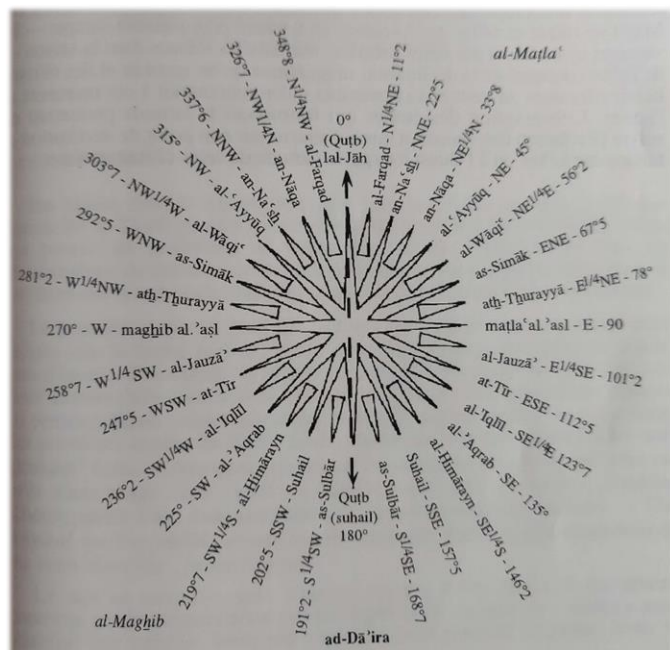 al-Maṭlaʿ
0°
(Quṭb)
lal-Jāh
al-Farqad - N1/4NE - 11°2
an-Naʿsh - NNE - 22°5
an-Nāqa - NE1/4N - 33°8
al-ʿAyyūq - NE - 45°
al-Wāqiʿ - NE1/4E - 56°2
as-Simāk - ENE - 67°5
ath-Thurayyā - E1/4NE - 78°
maṭlaʿal.ʾasl - E - 90
al-Jauzāʾ - E1/4SE - 101°2
at-Tīr - ESE - 112°5
al-ʾIqlīl - SE1/4E 123°7
al-ʾAqrab - SE - 135°
al-Himārayn - SE1/4S - 146°2
Suhail - SSE - 157°5
as-Sulbār - S1/4SE - 168°7
Quṭb
(suhail)
180°
191°2 - S 1/4SW - as-Sulbār
202°5 - SSW - Suhail
219°7 - SW1/4S - al-Himārayn
225° - SW - al-ʾAqrab
236°2 - SW1/4W - al-ʾIqlīl
247°5 - WSW - at-Tīr
258°7 - W1/4 SW - al-Jauzāʾ
270° - W - maghib al.ʾaṣl
281°2 - W1/4NW - ath-Thurayyā
292°5 - WNW - as-Simāk
303°7 - NW1/4W - al-Wāqiʿ
315° - NW - al-ʿAyyūq
337°6 - NNW - an-Naʿsh
326°7 - NW1/4N - an-Nāqa
348°8 - N1/4NW - al-Farqad
al-Maghib
ad-Dāʾira